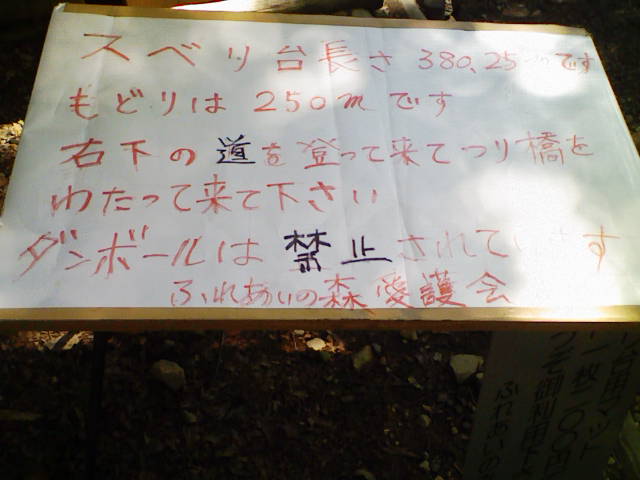 スベリ台長さ 380.25mです
もどりは 250mです
右下の道を登って来てつり橋を
わたって来て下さい
ダンボールは 禁止されています
ふれあいの森愛護会
マット
一枚一〇〇円
ふれあいの